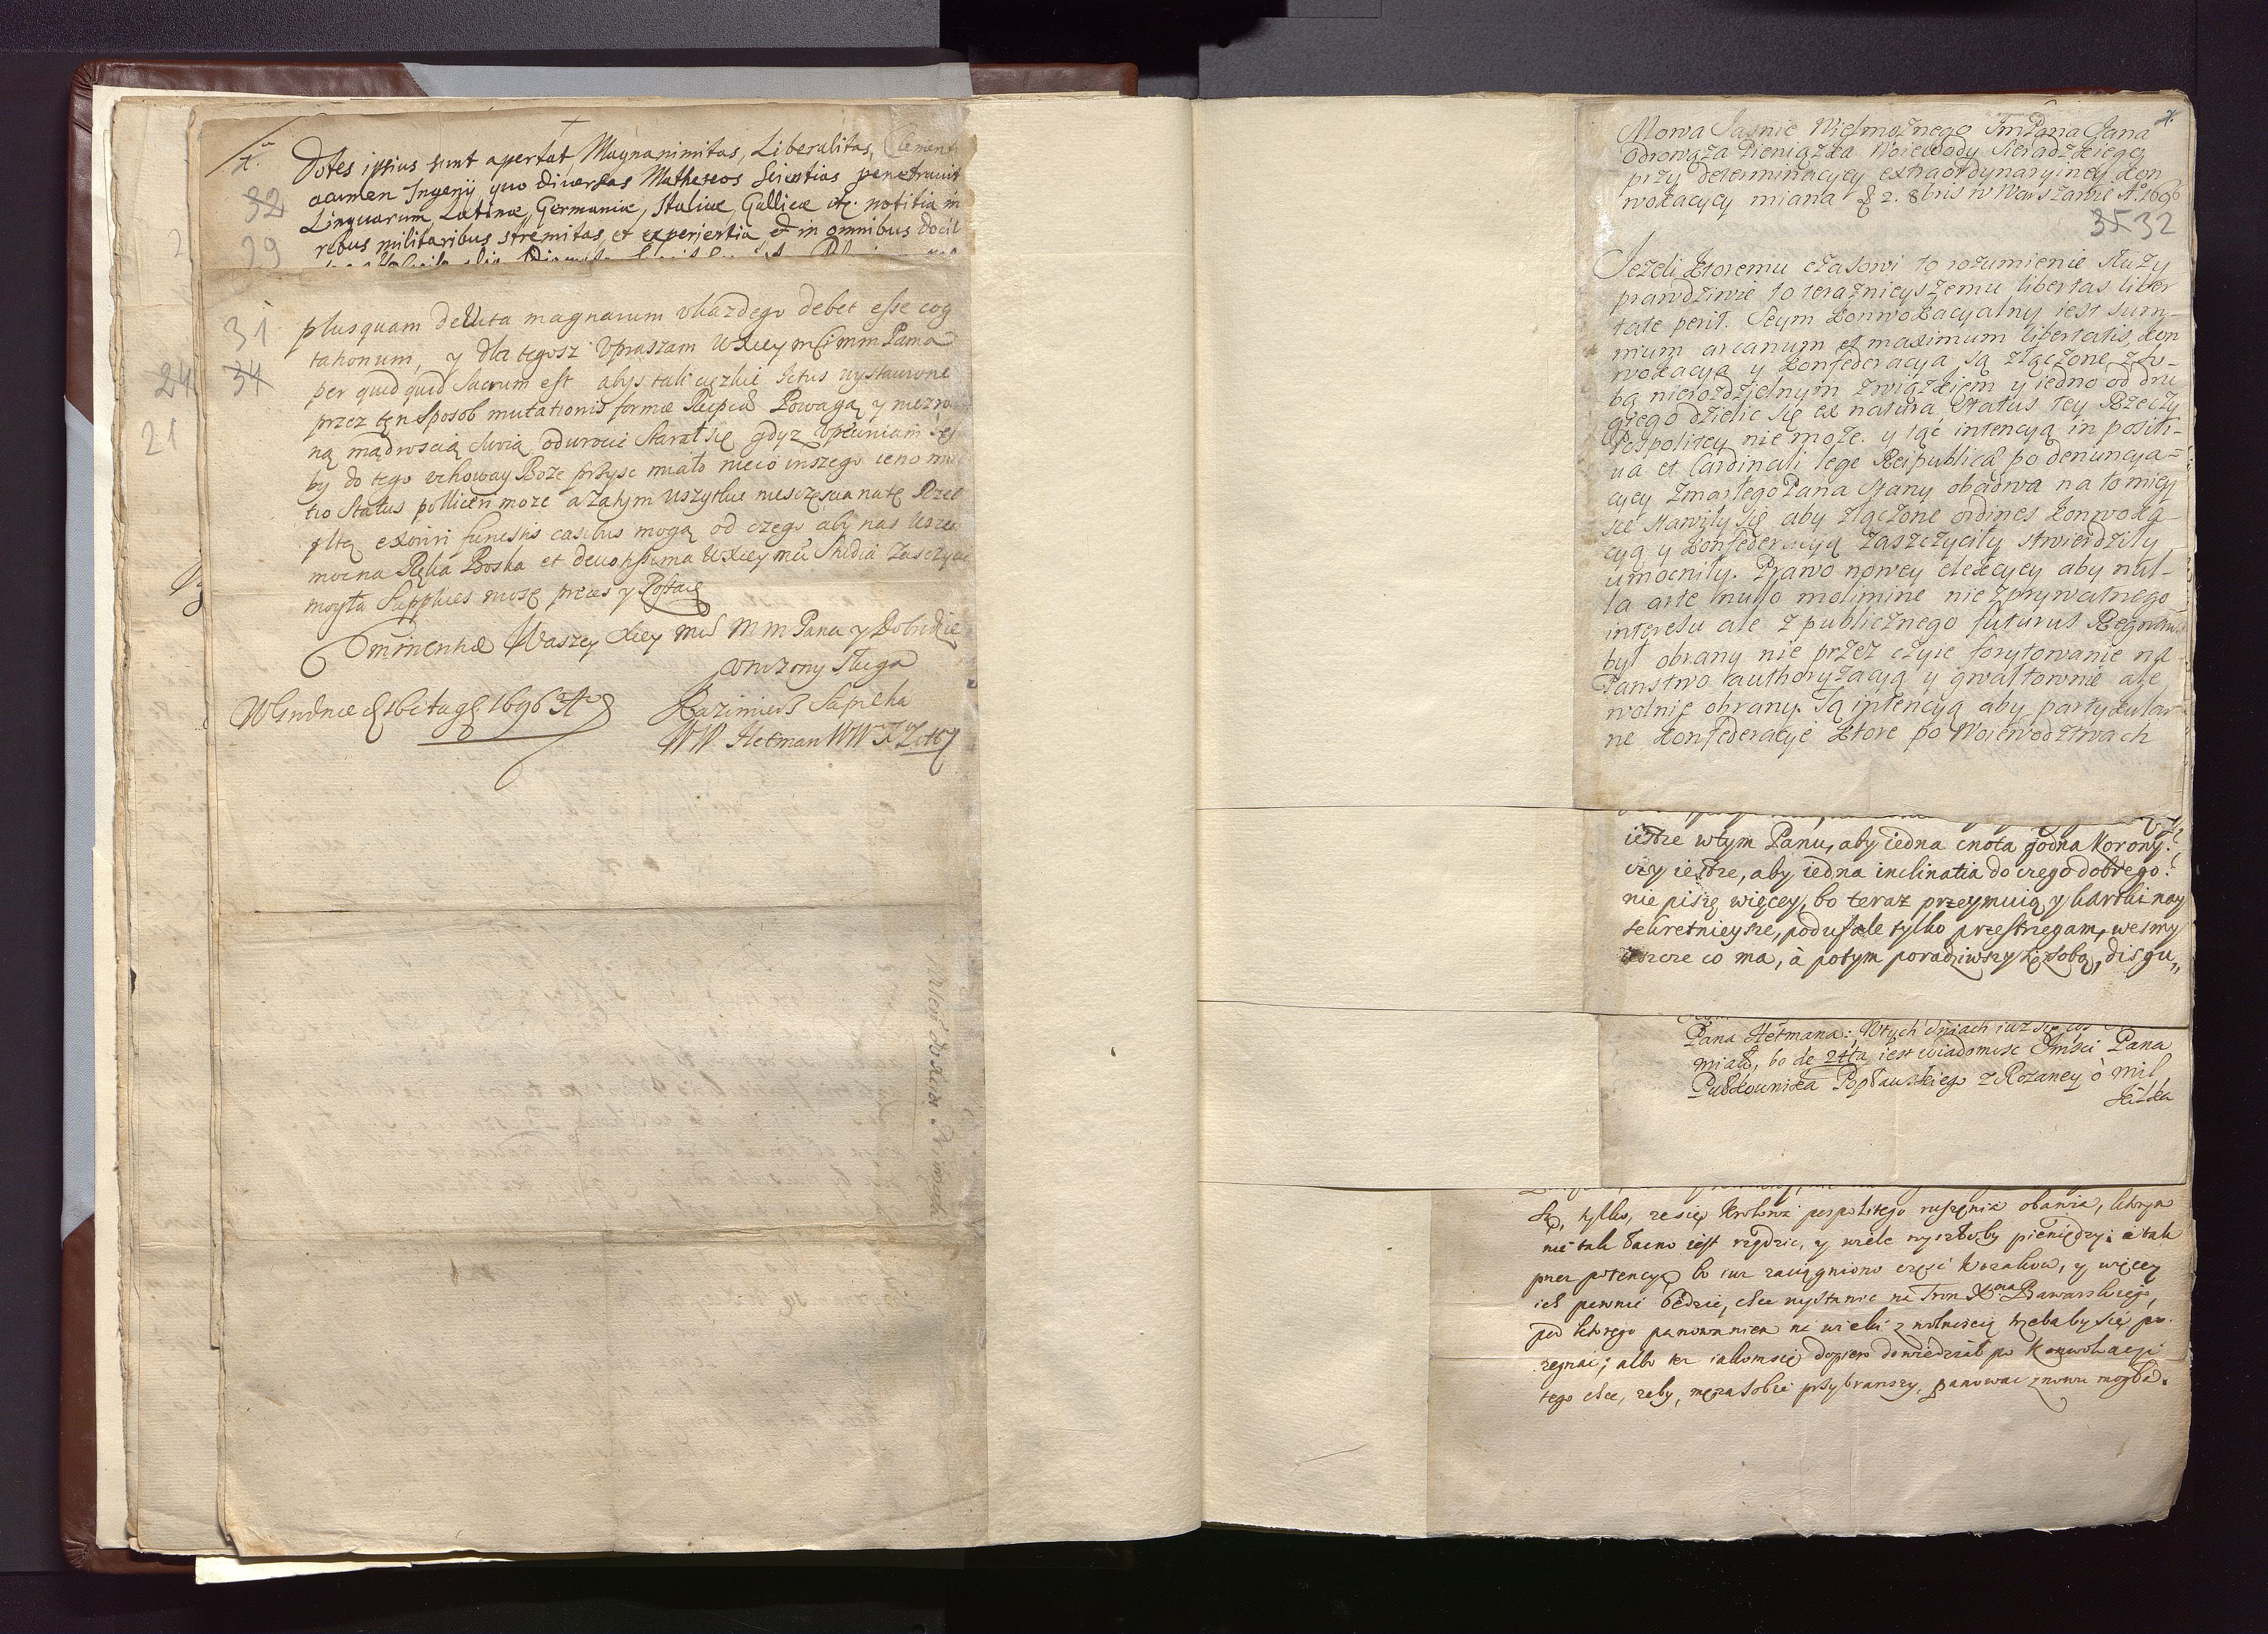 4.
Dotes ipsius sunt apertae Magnanimitas, Liberalitas, Clementi
acumen Ingenij quo diversas Matheseos Scientias penetravit
Linguarum Latinae, Germaniae, Italicae, Gallicae etc. notitia in
rebus militaribus strenuitas, et experientia, & in omnibus docil
32
29
31
34
24
21
plusquam deluta magnarum ukazdego debet esse cog
tationum, y dla tegosz Upraszam WXcey mci mm Pana
per quid quid Sacrum est abys tali cięzkie Ictus wystawione
przez tęn Sposob mutationis formae Reipub Powagą y
ną mądroscią Swoią odwrocic Starał się gdyz upewniam ze
by do tego uchoway Boze przysc miało nieco inszego ieno
tio Status polliceri moze a zatym wszytkie niesczęscia na tę Rzec
pltę exoriri funestis casibus mogą od czego aby nas
mocna Ręka Boska et devotissima WXcey mci Studia zasczyc
mogła Supplices noszę preces y Zostaię
Eminentiae Waszey Xcey Mci M m Pana y Dobrodzie
unizony sługa
W Grodnie d 16 Aug 1696 Ao
Kazimierz Sapieha
WW. Hetman WWXLitt
Mowa Jasnie Wielmożnego Jm Pana Jana
Odrowąża Pieniążka Woiewody Sieradzkiego
przy determinacyey extraordynaryiney Kon
wokacycy miana d 2. 8bris w Warszawie Ao. 1696
35 32
Jeżeli ktoremu czasowi to rozumienie służy
prawdziwie to teraznieyszemu libertas liber
tate perit. Seym konwokacyalny iest sum-
mum arcanum et maximum libertatis, kon
wokacya y konfederacya są złączone z so-
bą nierozdzielnym związkiem y iedno od dru
giego dzielic się ex natura status tey Rzeczy
Pospolitey nie może. y tąć intencyą in positi-
va et Cardinali lege Reipublicae po denuncya-
cycy zmarłego Pana Stany oboiwa na to miey
sce stawiły się aby złączone ordines konwoka-
cyą y konfederacyą zaszczyciły stwierdziły
umocniły. Prawo nowey elekcycy aby nul-
la arte nullo molimine nie z prywatnego
interesu ale z publicznego futurus Regnans
był obrany nie przez czyie forytowanie na
Panstwo authoryzacyą y gwałtownie ale
wolnie obrany. Tą intencyą aby partykular
ne konfederacyie ktore po Woiewodztwach
iestze w tym Panu, aby iedna cnota godna Korony?
czy iestze, aby iedna inclinatia do czego dobrego?
nie piszę więcey, bo teraz przeymuią y kartki nay
sekretnieysze, podufale tylko przestrzegam, wezmy
ieszcze co ma, à potym poradziwszy się z sobą, disgu„
Pana Hetmana: Wtych dniach iuz się cos
miało, bo de 24ta iest wiadomosc Jmsci Pana
Pułkownika Popławskiego z Rozaney o mil
kilka
tylko, ze się Krolowa pospolitego ruszenia obawia, ktorym
nie tak łacno iest rządzic, y wiele wyszłoby pieniędzy: a tak
przez potencyą bo iuz zaciągniono częsc kozakow, y więcey
ich pewnie będzie, chce wystawic na Tron Xcia Bawarskiego,
pod ktorego panowaniem na wieki z wolnoscią trzeba by się po-
zegnac; albo tez iakomsię dopiero dowiedział po Konwokacyi
tego chce, zeby, męza sobie przybrawszy, panowac znowu mogła.